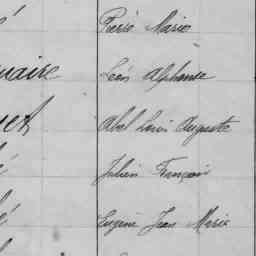 é Pierre Marie
uaire Léon Alphonse
uet Abel Louis Auguste
é Julien François
é Eugène Jean Marie